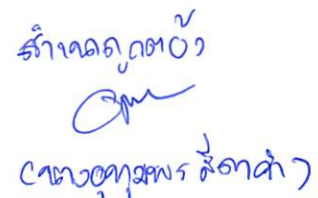 สำเนาถูกต้อง
(นางอุทุมพร สีดาคำ)